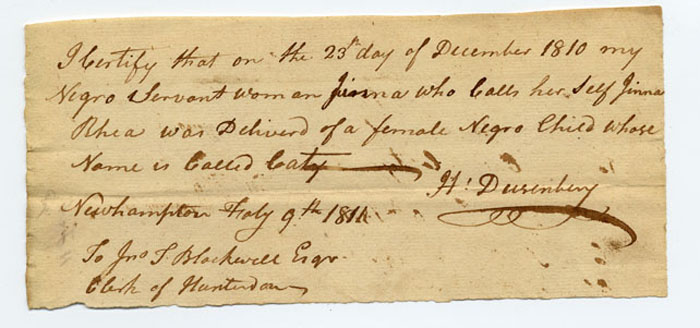 I Certify that on the 23d day of December 1810 my
Negro Servant woman Jinna who Calls her Self Jinna
Rhea was Deliverd of a female Negro Child whose
Name is Called Caty
Hy. Dusenbery
Newhampton Feby 9th 1811
To Jno. S. Blackwell Esqr
Clerk of Hunterdon